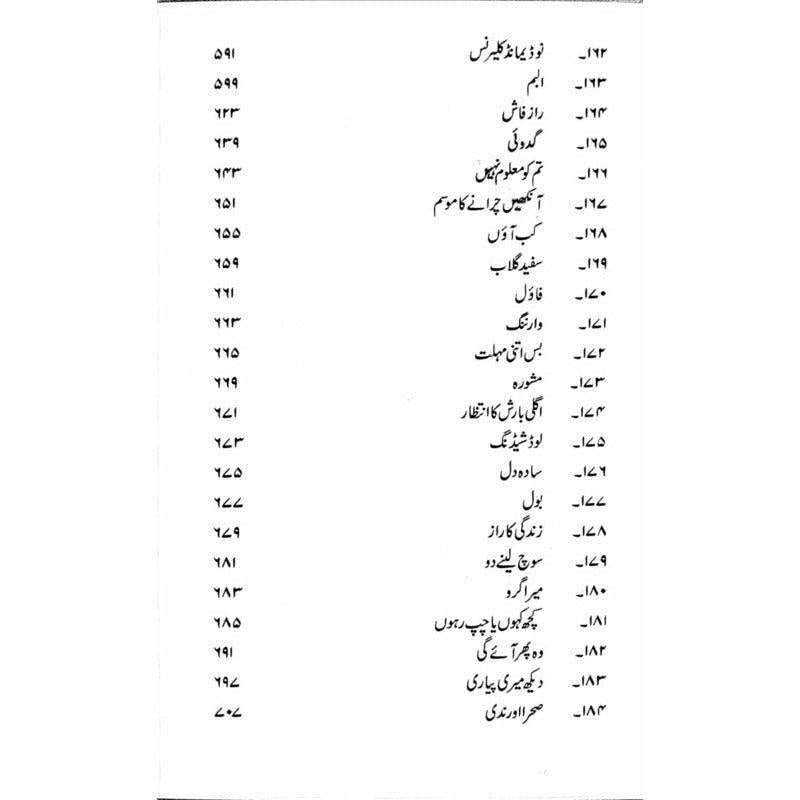 ۱۶۲۔ نو ڈیمانڈ کلیرنس ۵۹۱
۱۶۳۔ البم ۵۹۹
۱۶۴۔ راز فاش ۶۲۳
۱۶۵۔ گدوئی ۶۳۹
۱۶۶۔ تم کو معلوم نہیں ۶۴۳
۱۶۷۔ آنکھیں چرانے کا موسم ۶۵۱
۱۶۸۔ کب آؤں ۶۵۵
۱۶۹۔ سفید گلاب ۶۵۹
۱۷۰۔ فاؤل ۶۶۱
۱۷۱۔ وارننگ ۶۶۳
۱۷۲۔ بس اتنی مہلت ۶۶۵
۱۷۳۔ مشورہ ۶۶۹
۱۷۴۔ اگلی بارش کا انتظار ۶۷۱
۱۷۵۔ لوڈشیڈنگ ۶۷۳
۱۷۶۔ سادہ دل ۶۷۵
۱۷۷۔ بول ۶۷۷
۱۷۸۔ زندگی کا راز ۶۷۹
۱۷۹۔ سوچ لینے دو ۶۸۱
۱۸۰۔ میرا گرو ۶۸۳
۱۸۱۔ کچھ کہوں یا چپ رہوں ۶۸۵
۱۸۲۔ وہ پھر آئے گی ۶۹۱
۱۸۳۔ دیکھ میری پیاری ۶۹۷
۱۸۴۔ صحرا اور ندی ۷۰۷